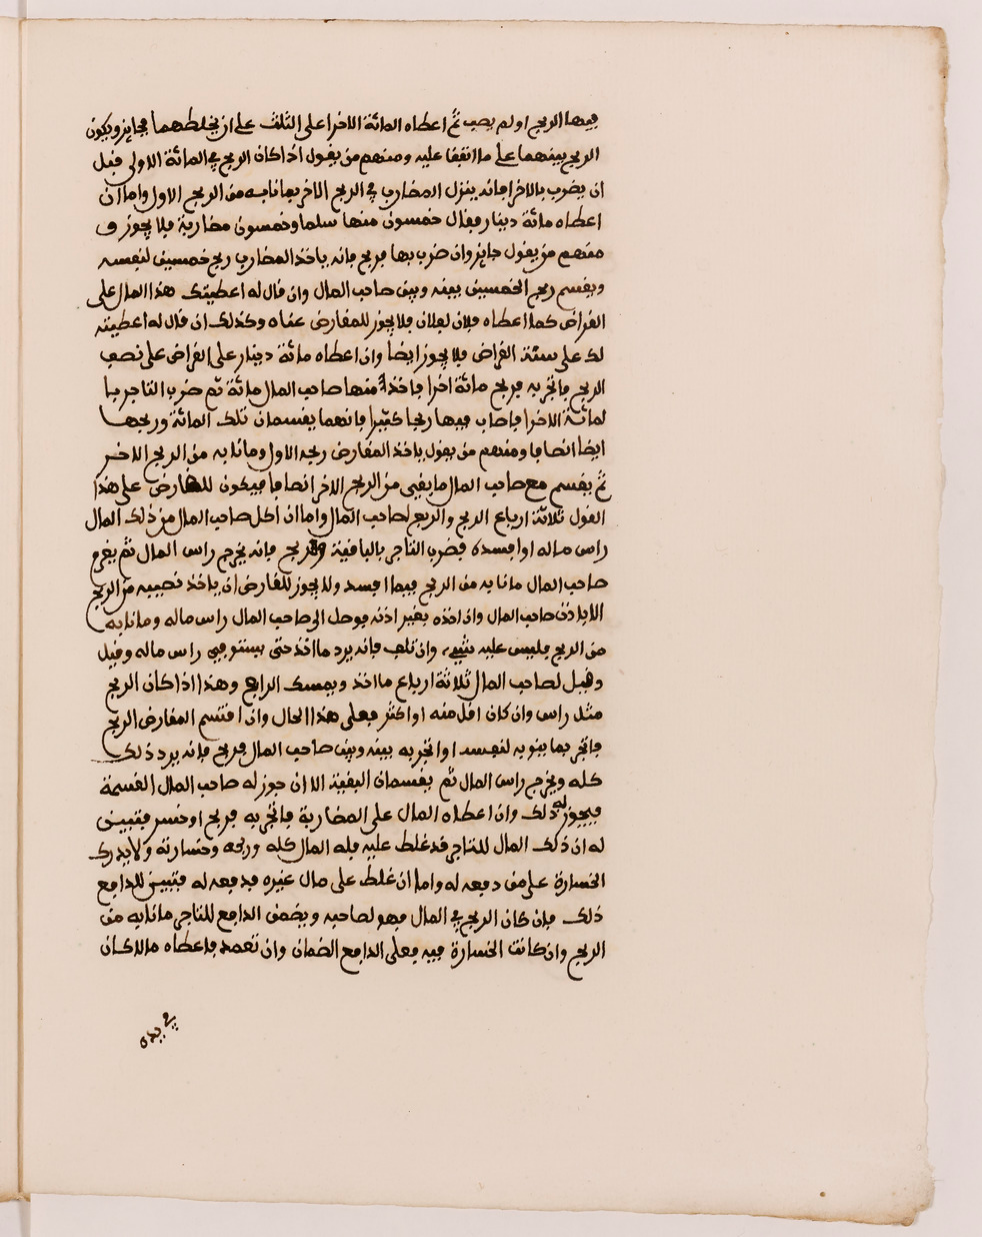 فيها الربح او لم يصب ثم اعطاه المائة الاخرا على الثلث على ان يخلطهما فجايز ويكون
الربح بينهما على ما اتفقا عليه ومنهم من يقول اذا كان الربح في المائة الاولى قبل
ان يضرب بالاخرا فانه ينزل المضارب في الربح الاخر بما نابه من الربح الاول واما ان
اعطاه مائة دينار فقال خمسون منها سلما وخمسون مضاربة فلا يجوز و
منهم من يقول جايز وان ضرب بها فربح فانه ياخذ المضارب ربح خمسين لنفسه
ويقسم ربح الخمسين بينه وبين صاحب المال وان قال له اعطيتك هذا المال على
القراض كما اعطاه فلان لفلان فلا يجوز للمقارض عناه وكذلك ان قال له اعطيته
لك على سنة القراض فلا يجوز ايضا وان اعطاه مائة دينار على القراض على نصف
الربح فاتجر به فربح مائة اخرا فاخذ منها صاحب المال مائة ثم ضرب التاجر با
لمائة الاخرا فاصاب فيها ربحا كثيرا فانهما يقسمان تلك المائة وربحها
ايضا انصافا ومنهم من يقول ياخذ المقارض ربحه الاول وما نابه من الربح الاخر
ثم يقسم مع صاحب المال ما بقي من الربح الاخر انصافا فيكون للمقارض على هذا
القول ثلاثة ارباع الربح والربع لصاحب المال واما ان اكل صاحب المال من ذلك المال
راس ماله او افسده فضرب التاجر بالباقية وربح فانه يخرج راس المال ثم يغرم
صاحب المال ما نابه من الربح فيما افسد ولا يجوز للمقارض ان ياخذ نصيبه من الربح
الا باذن صاحب المال وان اخذه بغير اذنه فوصل الى صاحب المال راس ماله وما نابه
من الربح فليس عليه شيء وان تلف فانه يرد ما اخذ حتى يستوفي راس ماله وقيل
وقيل لصاحب المال ثلاثة ارباع ما اخذ ويمسك الرابع وهذا اذا كان الربح
مثل راس وان كان اقل منه او اكثر فعلى هذا الحال وان اقتسم المقارض الربح
فاتجر بما ينوبه لنفسه او اتجر به بينه وبين صاحب المال فربح فانه يرد ذلك
كله ويخرج راس المال ثم يقسمان البقية الا ان جوز له صاحب المال القسمة
فيجوز له ذلك وان اعطاه المال على المضاربة فاتجر به فربح او خسر فتبين
له ان ذلك المال للتاجر قد غلط عليه فله المال كله وربحه وخسارته ولا يدرك
الخسارة على من دفعه له واما ان غلط على مال غيره فدفعه له فتبين للدافع
ذلك فان كان الربح في المال فهو لصاحبه ويضمن الدافع للتاجر ما نابه من
الربح وان كانت الخسارة فيه فعلى الدافع الضمان وان تعمد فاعطاه مالا كان
في يده